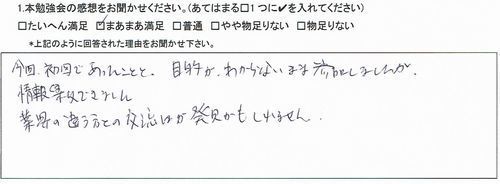 1.本勉強会の感想をお聞かせください。(あてはまる□１つに✔を入れてください)
□たいへん満足 ☑まあまあ満足 □普通 □やや物足りない □物足りない
*上記のように回答された理由をお聞かせ下さい。
今回、初回であったことと、目的が、わからないまま参加しましたが、
情報できました
業界の違う方との交流はが発見かもしれません.